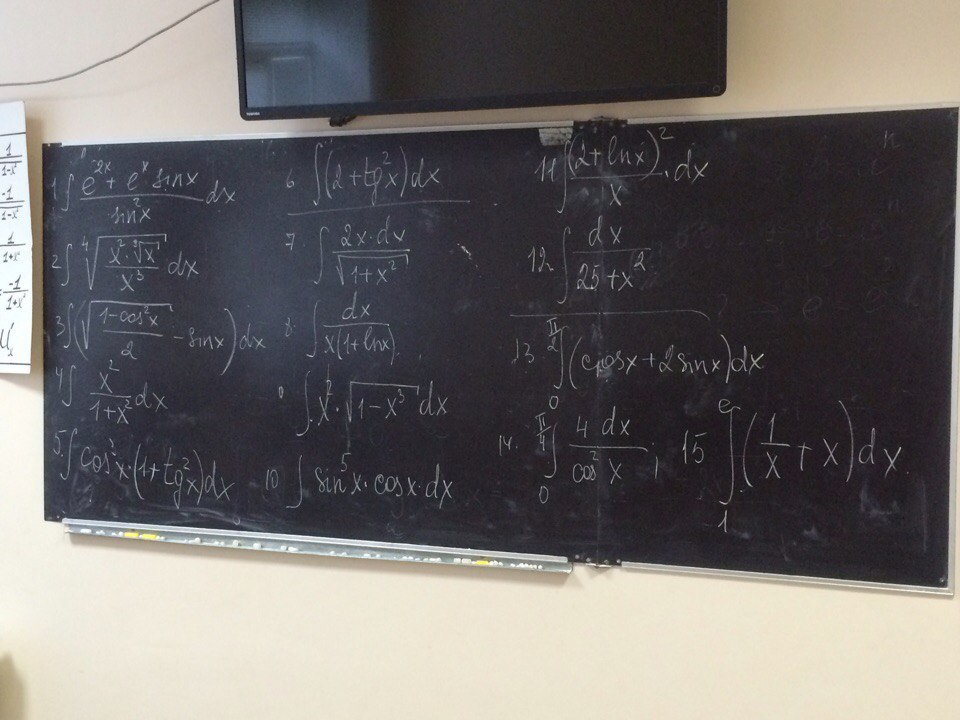 TOSHIBA
1/√(1-x²)
-1/√(1-x²)
1/(1+x²)
= -1/(1+x²)
1 ∫ (e^(2x) + e^x sinx)/(sin²x) dx
2 ∫ ⁴√((x² · ³√x)/x³) dx
3 ∫ (√((1-cos²x)/2) - sinx) dx
4 ∫ x²/(1+x²) dx
5. ∫ cos²x · (1+tg²x) dx
6 ∫ (2+tg²x) dx
7. ∫ (2x·dx)/√(1+x²)
8 ∫ dx/(x(1+lnx))
9 ∫ x² · √(1-x³) dx
10 ∫ sin⁵x · cosx · dx
11 ∫ (2+lnx)²/x · dx
12 ∫ dx/(25+x²)
13 ∫₀^(π/2) (cosx+2sinx) dx
14. ∫₀^(π/4) (4 dx)/(cos²x);
15 ∫₁^e (1/x + x) dx